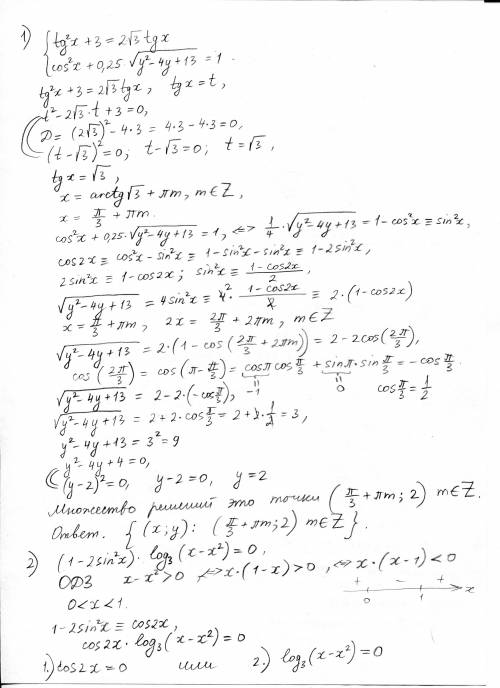 1) { tg²x + 3 = 2√3 tgx
cos²x + 0,25·√(y²-4y+13) = 1.
tg²x + 3 = 2√3 tgx, tgx = t,
t² - 2√3·t + 3 = 0,
D = (2√3)² - 4·3 = 4·3 - 4·3 = 0,
(t-√3)² = 0; t-√3 = 0; t = √3,
tgx = √3,
x = arctg√3 + πm, m∈Z,
x = π/3 + πm.
cos²x + 0,25·√(y²-4y+13) = 1, <=> 1/4·√(y²-4y+13) = 1-cos²x ≡ sin²x,
cos2x ≡ cos²x - sin²x ≡ 1-sin²x-sin²x ≡ 1-2sin²x,
2sin²x ≡ 1-cos2x; sin²x ≡ (1-cos2x)/2,
√(y²-4y+13) = 4sin²x ≡ 4²·(1-cos2x)/2 ≡ 2·(1-cos2x)
x = π/3 + πm, 2x = 2π/3 + 2πm, m∈Z
√(y²-4y+13) = 2·(1-cos(2π/3 + 2πm)) = 2-2cos(2π/3),
cos(2π/3) = cos(π-π/3) = cosπ cos π/3 + sinπ·sin π/3 = -cos π/3.
√(y²-4y+13) = 2-2·(-cos π/3), -1 0 cos π/3 = 1/2
√(y²-4y+13) = 2+2·cos π/3 = 2+2·1/2 = 3,
y²-4y+13 = 3² = 9
y²-4y+4 = 0,
(y-2)² = 0, y-2 = 0, y = 2
Множество решений это точки (π/3 + πm; 2) m∈Z.
Ответ. { (x;y): (π/3 + πm; 2) m∈Z }.
2) (1-2sin²x)·log₃(x-x²) = 0,
ОДЗ x-x² > 0 <=> x·(1-x) > 0, <=> x·(x-1) < 0
+ - +
0 < x < 1. 0 1 x
1-2sin²x ≡ cos2x,
cos2x·log₃(x-x²) = 0
1.) cos2x = 0 или 2.) log₃(x-x²) = 0